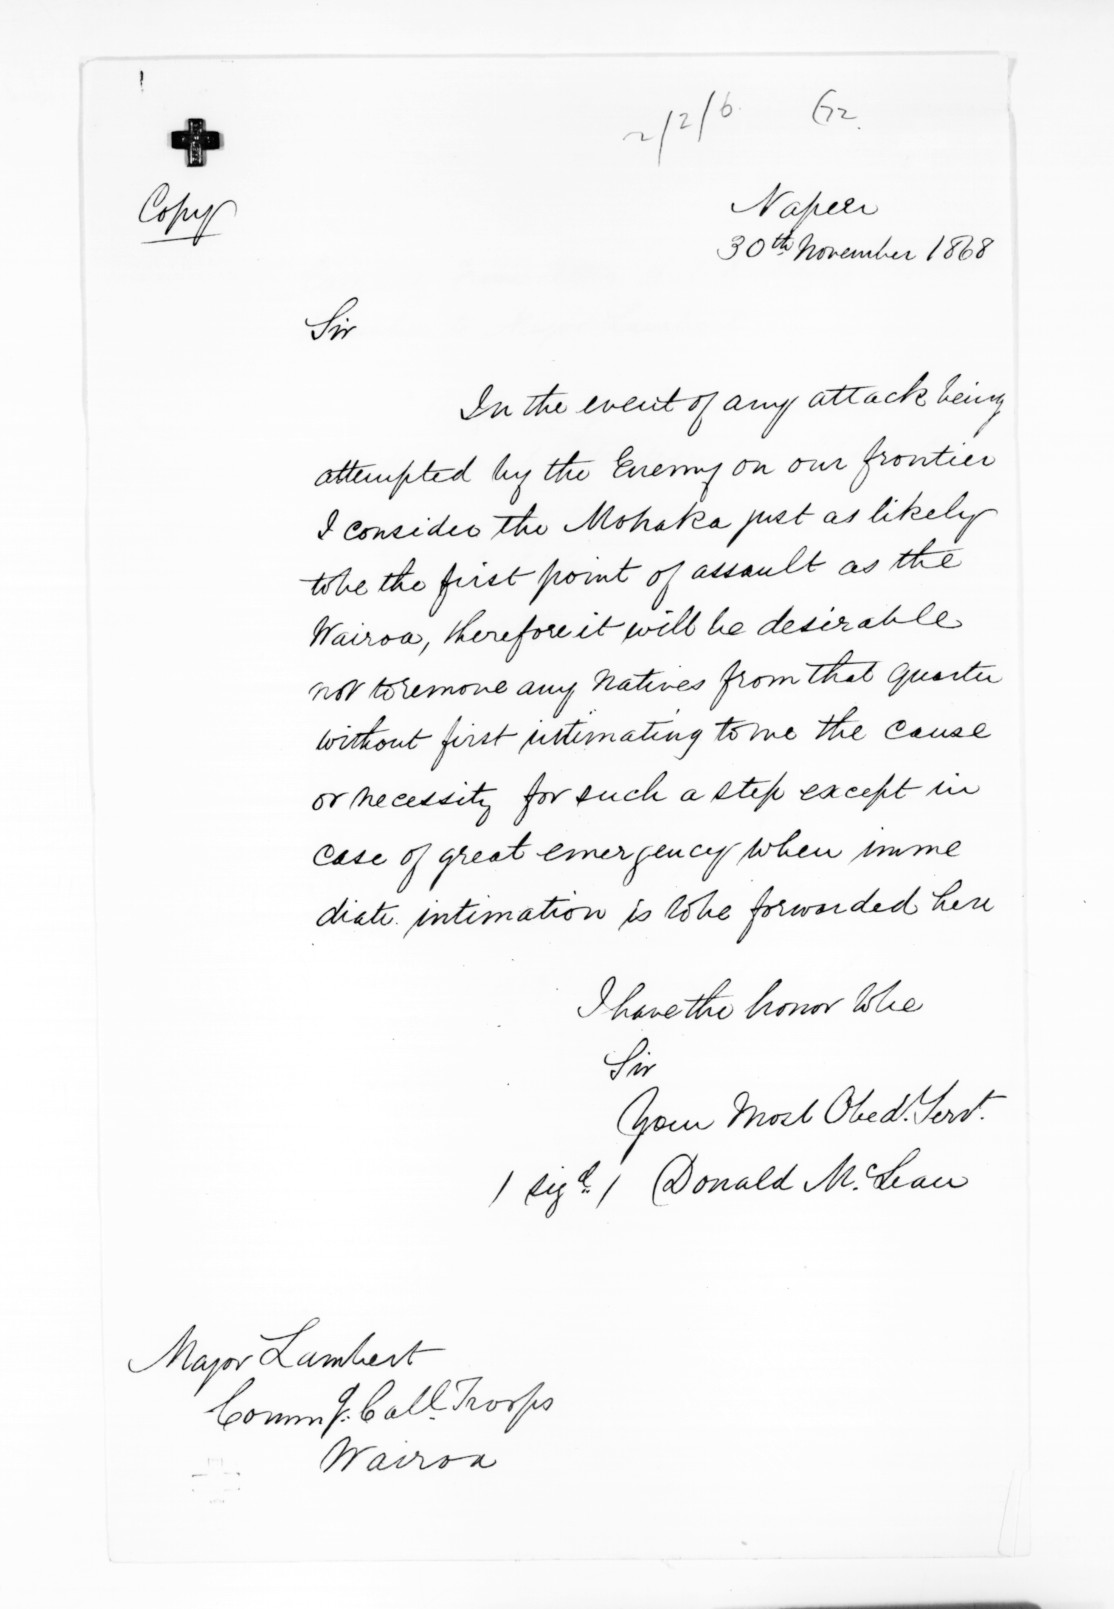 2/2/6. G2.
Copy
Napier
30th November 1868
Sir
In the event of any attack being
attempted by the Enemy on our frontier
I consider the Mohaka just as likely
to be the first point of assault as the
Wairoa, therefore it will be desirable
not to remove any Natives from that quarter
without first intimating to me the cause
or necessity for such a step except in
case of great emergency when imme
diate intimation is to be forwarded here
I have the honor to be
Sir
Your Most Obedt. Servt.
/ sigd. / Donald McLean
Major Lambert
Commg. Coll. Troops
Wairoa